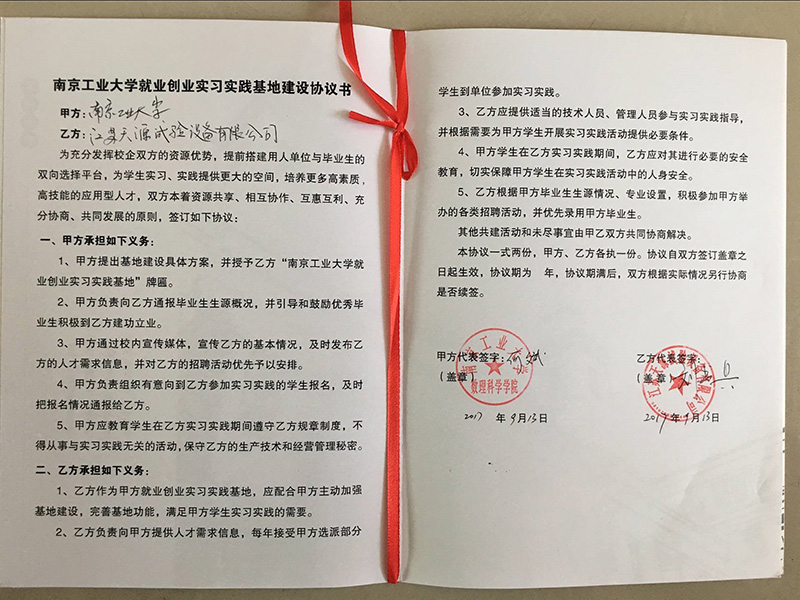 南京工业大学就业创业实习实践基地建设协议书
甲方：南京工业大学
乙方：江苏天源试验设备有限公司
为充分发挥校企双方的资源优势，提前搭建用人单位与毕业生的
双向选择平台，为学生实习、实践提供更大的空间，培养更多高素质，
高技能的应用型人才，双方本着资源共享、相互协作、互惠互利、充
分协商、共同发展的原则，签订如下协议：
一、甲方承担如下义务：
1、甲方提出基地建设具体方案，并授予乙方“南京工业大学就
业创业实习实践基地”牌匾。
2、甲方负责向乙方通报毕业生生源概况，并引导和鼓励优秀毕
业生积极到乙方建功立业。
3、甲方通过校内宣传媒体，宣传乙方的基本情况，及时发布乙
方的人才需求信息，并对乙方的招聘活动优先予以安排。
4、甲方负责组织有意向到乙方参加实习实践的学生报名，及时
把报名情况通报给乙方。
5、甲方应教育学生在乙方实习实践期间遵守乙方规章制度，不
得从事与实习实践无关的活动，保守乙方的生产技术和经营管理秘密。
二、乙方承担如下义务：
1、乙方作为甲方就业创业实习实践基地，应配合甲方主动加强
基地建设，完善基地功能，满足甲方学生实习实践的需要。
2、乙方负责向甲方提供人才需求信息，每年接受甲方选派部分
学生到单位参加实习实践。
3、乙方应提供适当的技术人员、管理人员参与实习实践指导，
并根据需要为甲方学生开展实习实践活动提供必要条件。
4、甲方学生在乙方实习实践期间，乙方应对其进行必要的安全
教育，切实保障甲方学生在实习实践活动中的人身安全。
5、乙方根据甲方毕业生生源情况、专业设置，积极参加甲方举
办的各类招聘活动，并优先录用甲方毕业生。
其他共建活动和未尽事宜由甲乙双方共同协商解决。
本协议一式两份，甲方、乙方各执一份。协议自双方签订盖章之
日起生效，协议期为 年，协议期满后，双方根据实际情况另行协商
是否续签。
甲方代表签字：
（盖章）
南京工业大学
数理科学学院
2017 年 9月13日
乙方代表签字：
（盖章）
2017 年 9月13日